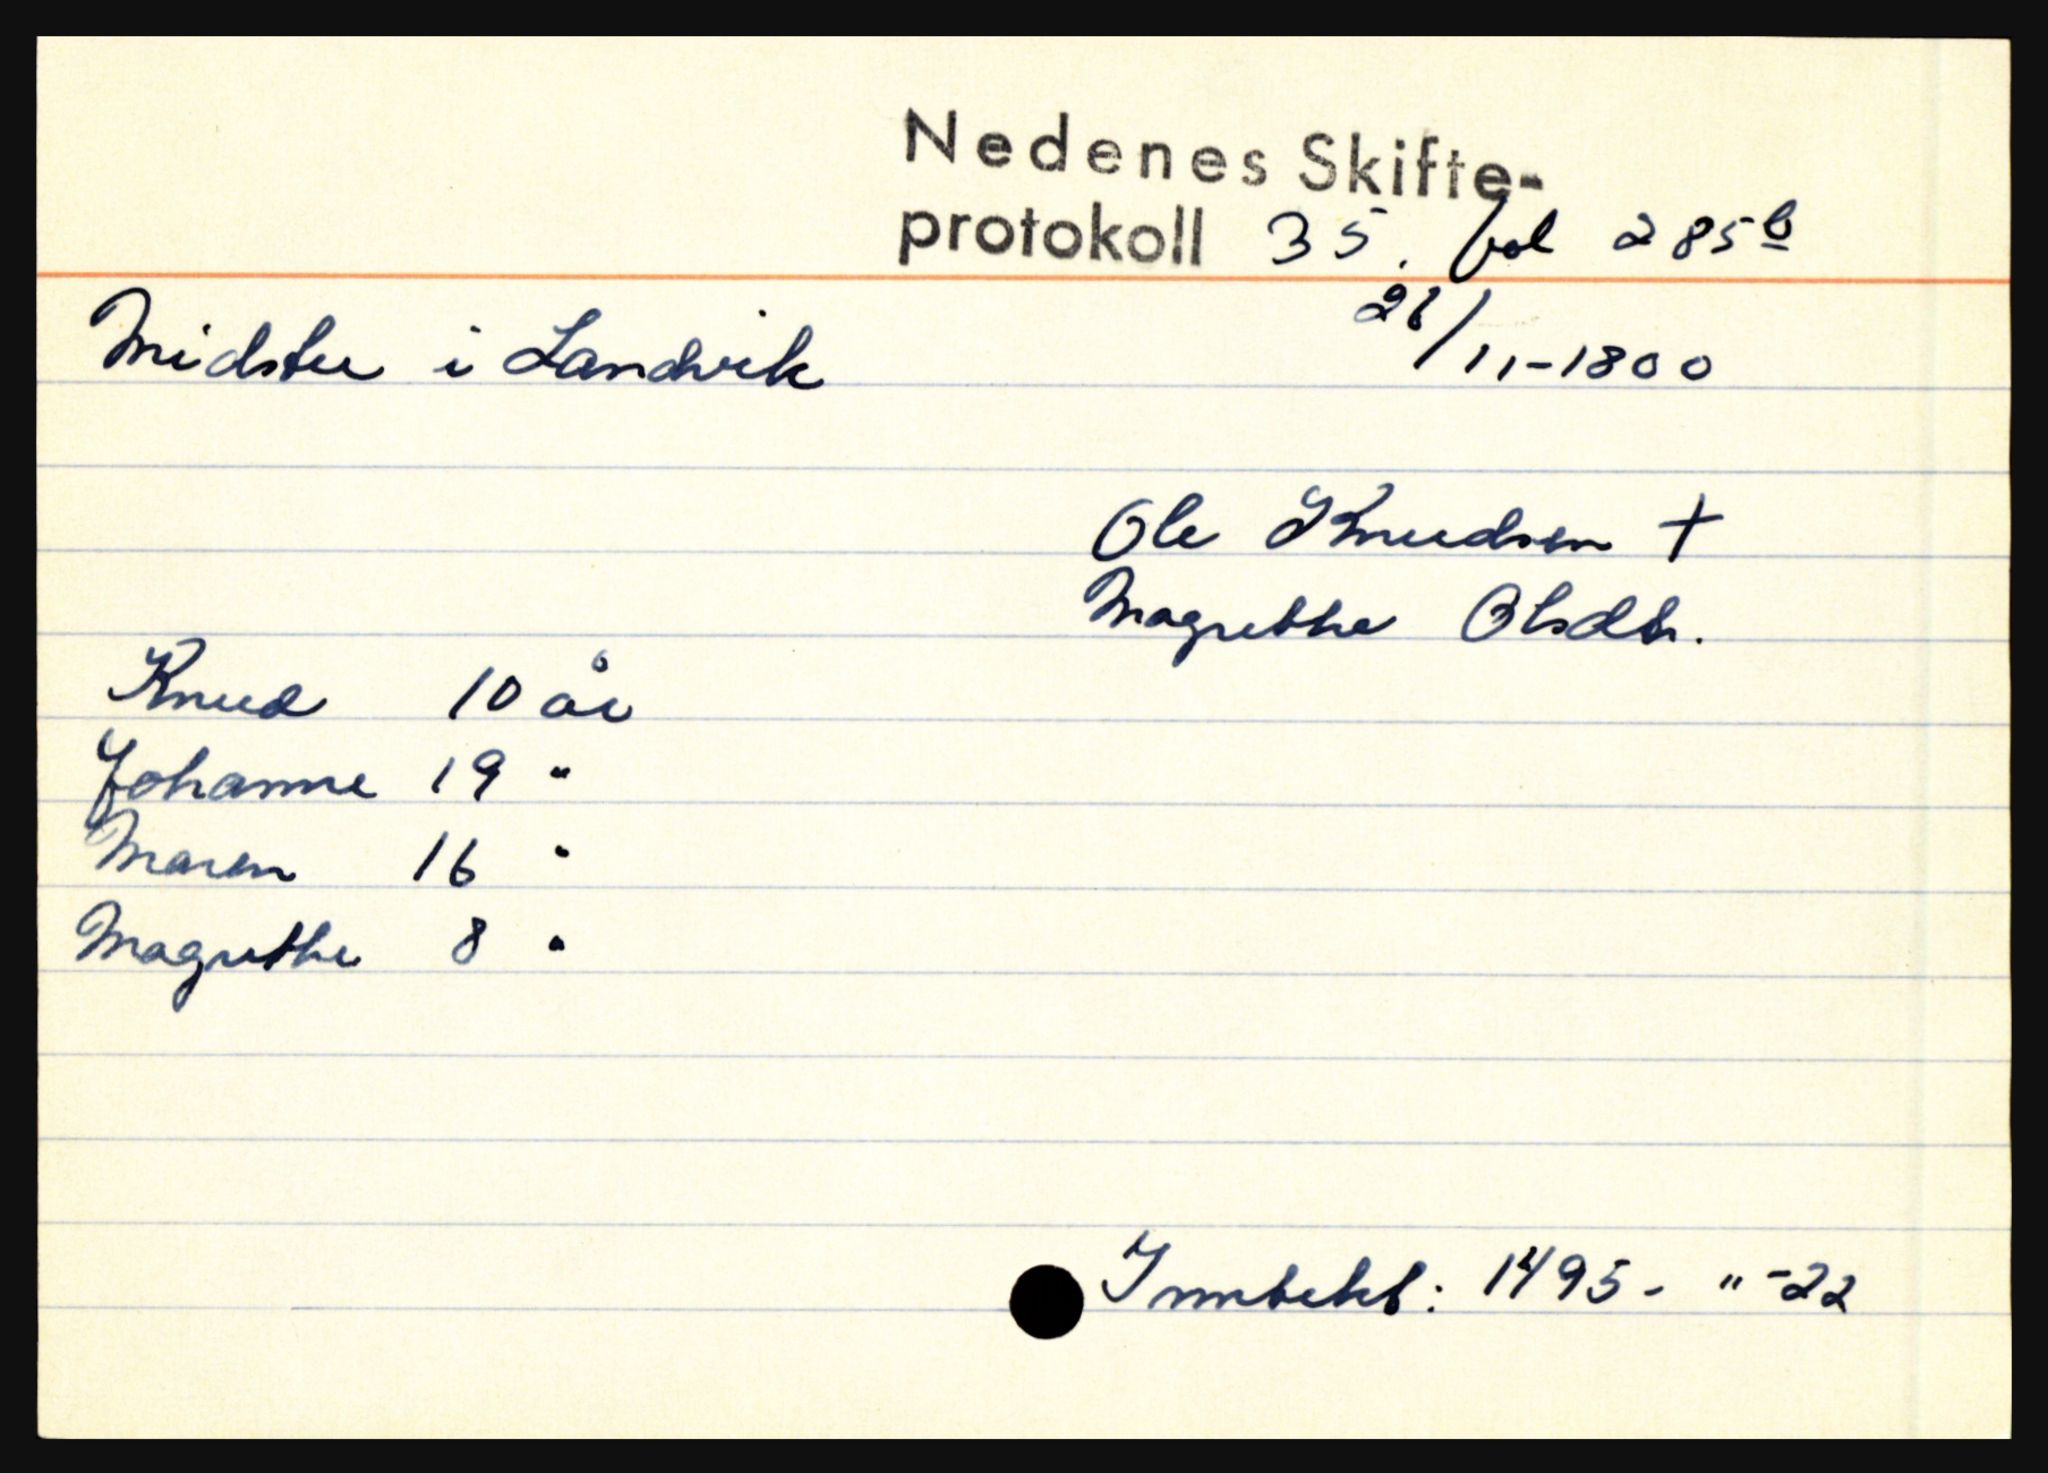 Nedenes Skifte-
protokoll 35. fol 285b
Midstu i Landvik
28/11-1800
Ole Knudsen +
Magrethe Olsdtr.
Knud 10 år
Johanne 19 "
Maren 16 "
Magrethe 8 "
Inntekt: 1495- "-22